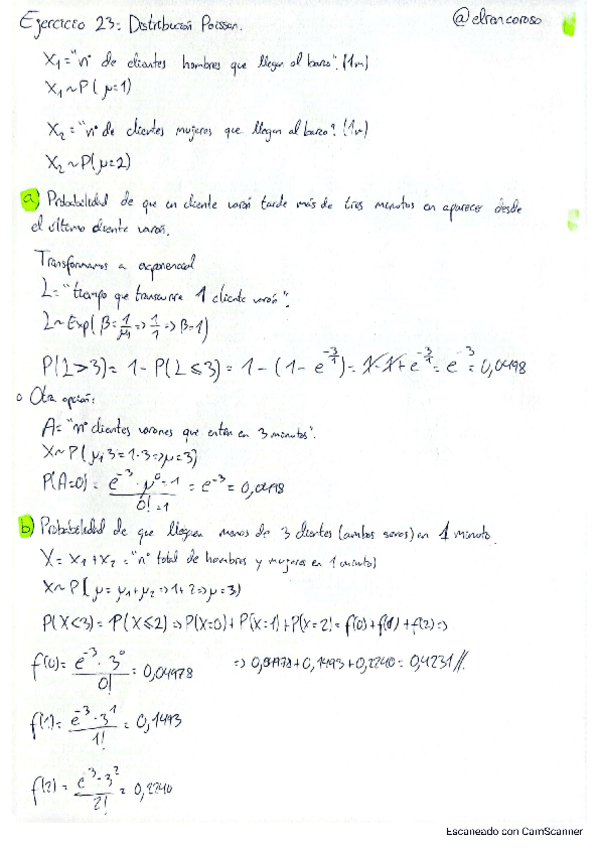 Ejercicio 23: Distribución Poisson. @elrancoroso
X₁ = "nº de clientes hombres que llegan al banco". (1m)
X₁ ~ P(μ=1)
X₂ = "nº de clientes mujeres que llegan al banco". (1m)
X₂ ~ P(μ=2)
a) Probabilidad de que un cliente varón tarde más de tres minutos en aparecer desde
el último cliente varón.
Transformamos a exponencial
L = "tiempo que transcurre 1 cliente varón".
L ~ Exp(β = 1/μ₁ => 1/1 => β=1)
P(L>3) = 1 - P(L≤3) = 1 - (1 - e^(-3/1)) = 1 - 1 + e^(-3/1) = e^(-3) = 0,0498
o Otra opción:
A = "nº clientes varones que entran en 3 minutos".
X ~ P(μ₁·3 = 1·3 => μ=3)
P(A=0) = e^(-3) · μ^0 = 1 / 0! = 1 = e^(-3) = 0,0498
b) Probabilidad de que lleguen menos de 3 clientes (ambos sexos) en 1 minuto.
X = X₁ + X₂ = "nº total de hombres y mujeres en 1 minuto)
X ~ P(μ = μ₁ + μ₂ => 1+2 => μ=3)
P(X<3) = P(X≤2) => P(X=0) + P(X=1) + P(X=2) = f(0) + f(1) + f(2) =>
f(0) = e^(-3) · 3^0 / 0! = 0,04978 => 0,04978 + 0,1493 + 0,2240 = 0,4231 //.
f(1) = e^(-3) · 3^1 / 1! = 0,1493
f(2) = e^(-3) · 3^2 / 2! = 0,2240
Escaneado con CamScanner